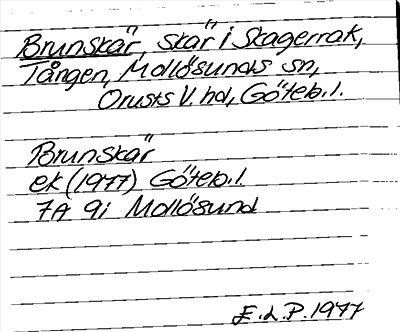 Brunskär, skär i Skagerrak,
Tången, Mollösunds sn,
Orusts V. hd, Göteb.l.
Brunskär
ek (1977) Göteb.l.
7A 9i Mollösund
E.L.P. 1977